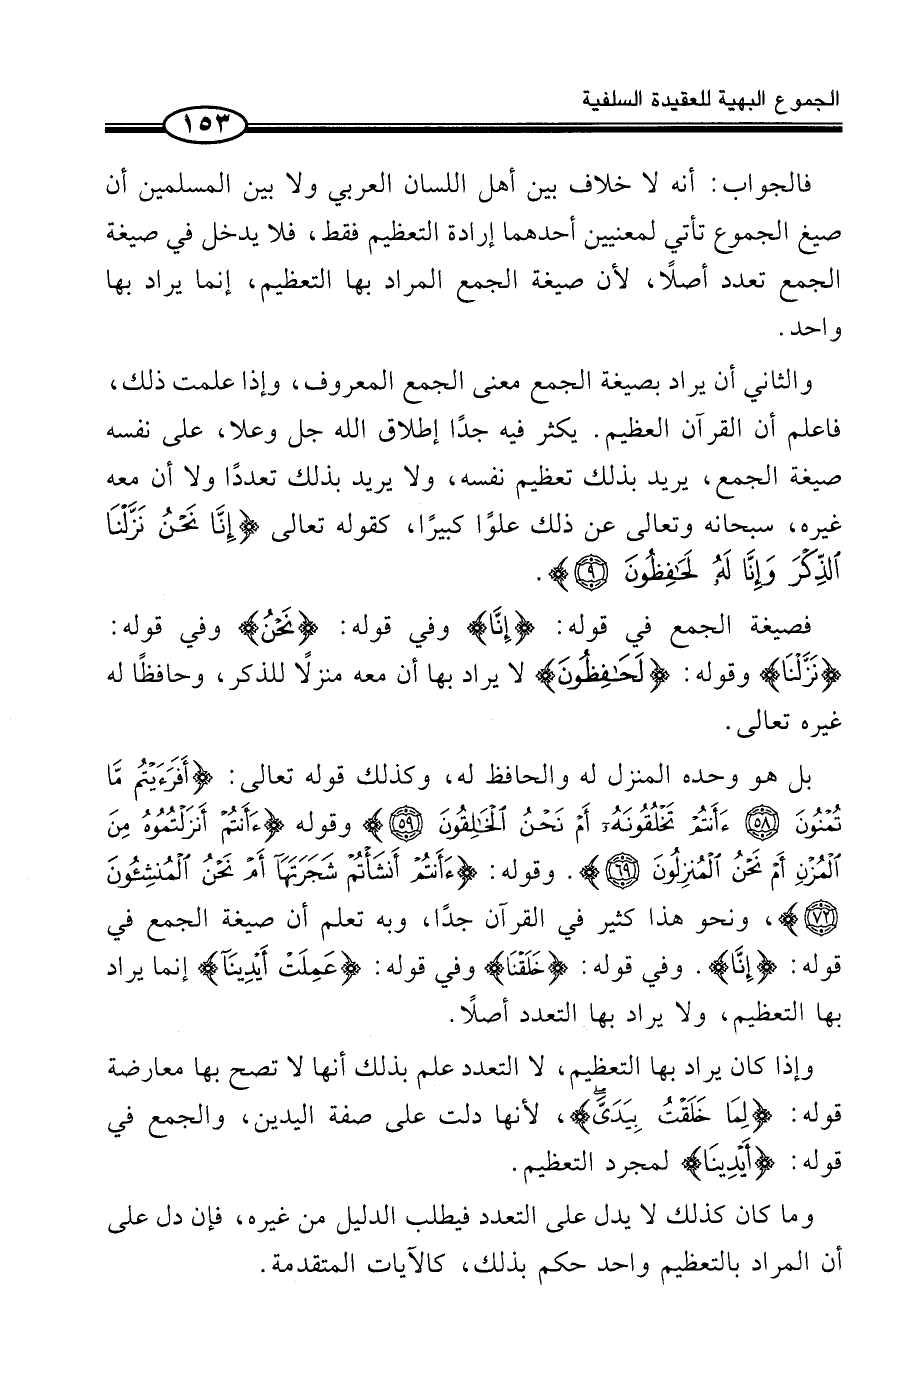 الجموع البهية للعقيدة السلفية
١٥٣
فالجواب: أنه لا خلاف بين أهل اللسان العربي ولا بين المسلمين أن
صيغ الجموع تأتي لمعنيين أحدهما إرادة التعظيم فقط، فلا يدخل في صيغة
الجمع تعدد أصلًا، لأن صيغة الجمع المراد بها التعظيم، إنما يراد بها
واحد.
والثاني أن يراد بصيغة الجمع معنى الجمع المعروف، وإذا علمت ذلك،
فاعلم أن القرآن العظيم. يكثر فيه جدًا إطلاق الله جل وعلا، على نفسه
صيغة الجمع، يريد بذلك تعظيم نفسه، ولا يريد بذلك تعددًا ولا أن معه
غيره، سبحانه وتعالى عن ذلك علوًا كبيرًا، كقوله تعالى ﴿إِنَّا نَحْنُ نَزَّلْنَا
ٱلذِّكْرَ وَإِنَّا لَهُۥ لَحَـٰفِظُونَ ۝٩﴾.
فصيغة الجمع في قوله: ﴿إِنَّا﴾ وفي قوله: ﴿نَحْنُ﴾ وفي قوله:
﴿نَزَّلْنَا﴾ وقوله: ﴿لَحَـٰفِظُونَ﴾ لا يراد بها أن معه منزلًا للذكر، وحافظًا له
غيره تعالى.
بل هو وحده المنزل له والحافظ له، وكذلك قوله تعالى: ﴿أَفَرَءَيْتُم مَّا
تُمْنُونَ ۝٥٨ ءَأَنتُمْ تَخْلُقُونَهُۥٓ أَمْ نَحْنُ ٱلْخَـٰلِقُونَ ۝٥٩﴾ وقوله ﴿ءَأَنتُمْ أَنزَلْتُمُوهُ مِنَ
ٱلْمُزْنِ أَمْ نَحْنُ ٱلْمُنزِلُونَ ۝٦٩﴾. وقوله: ﴿ءَأَنتُمْ أَنشَأْتُمْ شَجَرَتَهَآ أَمْ نَحْنُ ٱلْمُنشِـُٔونَ
۝٧٢﴾، ونحو هذا كثير في القرآن جدًا، وبه تعلم أن صيغة الجمع في
قوله: ﴿إِنَّا﴾. وفي قوله: ﴿خَلَقْنَا﴾ وفي قوله: ﴿عَمِلَتْ أَيْدِينَآ﴾ إنما يراد
بها التعظيم، ولا يراد بها التعدد أصلًا.
وإذا كان يراد بها التعظيم، لا التعدد علم بذلك أنها لا تصح بها معارضة
قوله: ﴿لِمَا خَلَقْتُ بِيَدَىَّ ۖ﴾، لأنها دلت على صفة اليدين، والجمع في
قوله: ﴿أَيْدِينَا﴾ لمجرد التعظيم.
وما كان كذلك لا يدل على التعدد فيطلب الدليل من غيره، فإن دل على
أن المراد بالتعظيم واحد حكم بذلك، كالآيات المتقدمة.